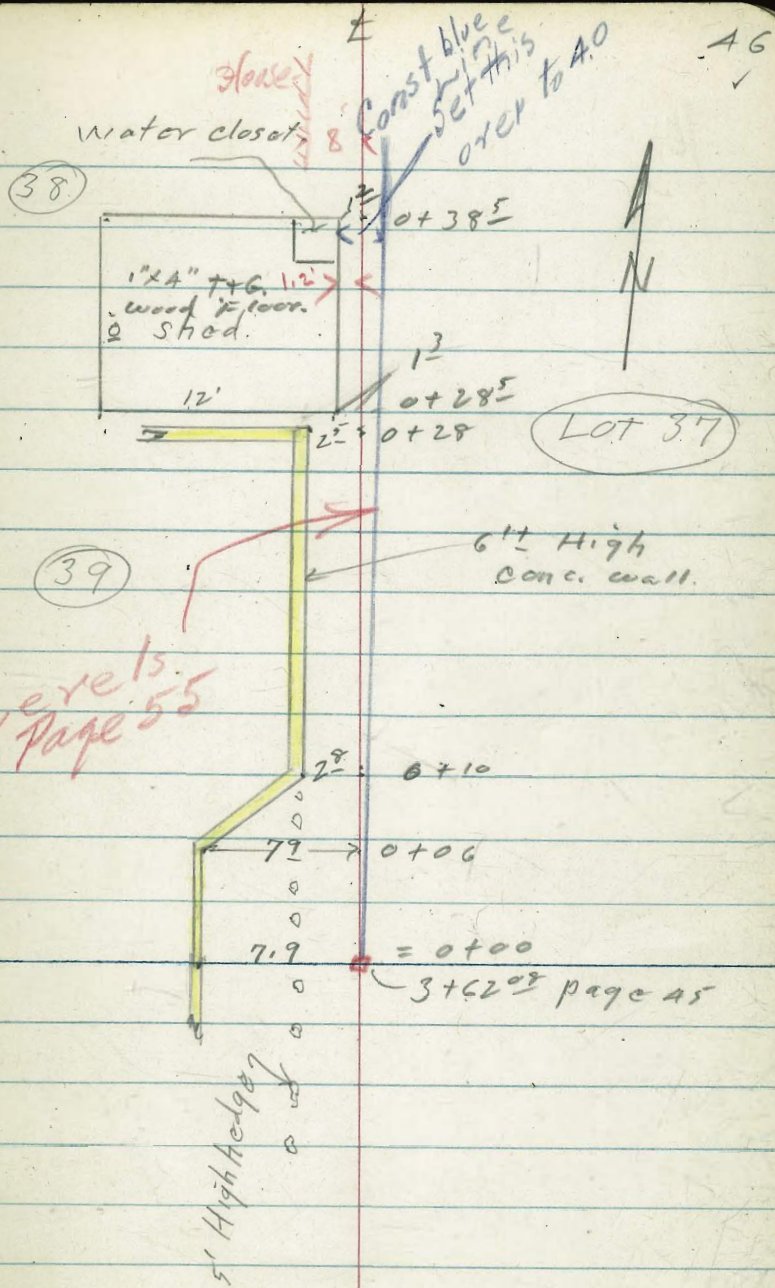 46
✓
House
8'
Const blue
line
Set this
over to 4.0
Water closet.
38
1²
0+38⁵
N
1"x4" T+G. 1.2'
wood Floor.
Shed.
10'
1³
12'
0+28⁵
2⁵ 0+28
LOT 37
6" ± High
conc. wall.
39
Levels
Page 55
2⁸ 0+10
7⁹ 0+06
7.9 = 0+00
3+62⁰⁸ page 45
5' High Hedge